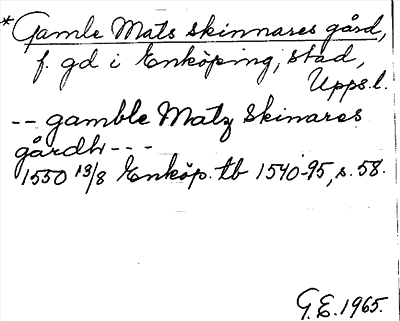 *Gamle Mats skinnares gård,
f. gd i Enköping, stad,
Upps. l.
-- gamble Matz Skinares
gårdh---
1550 13/8 Enköp. tb 1540-95, s. 58.
G.E. 1965.